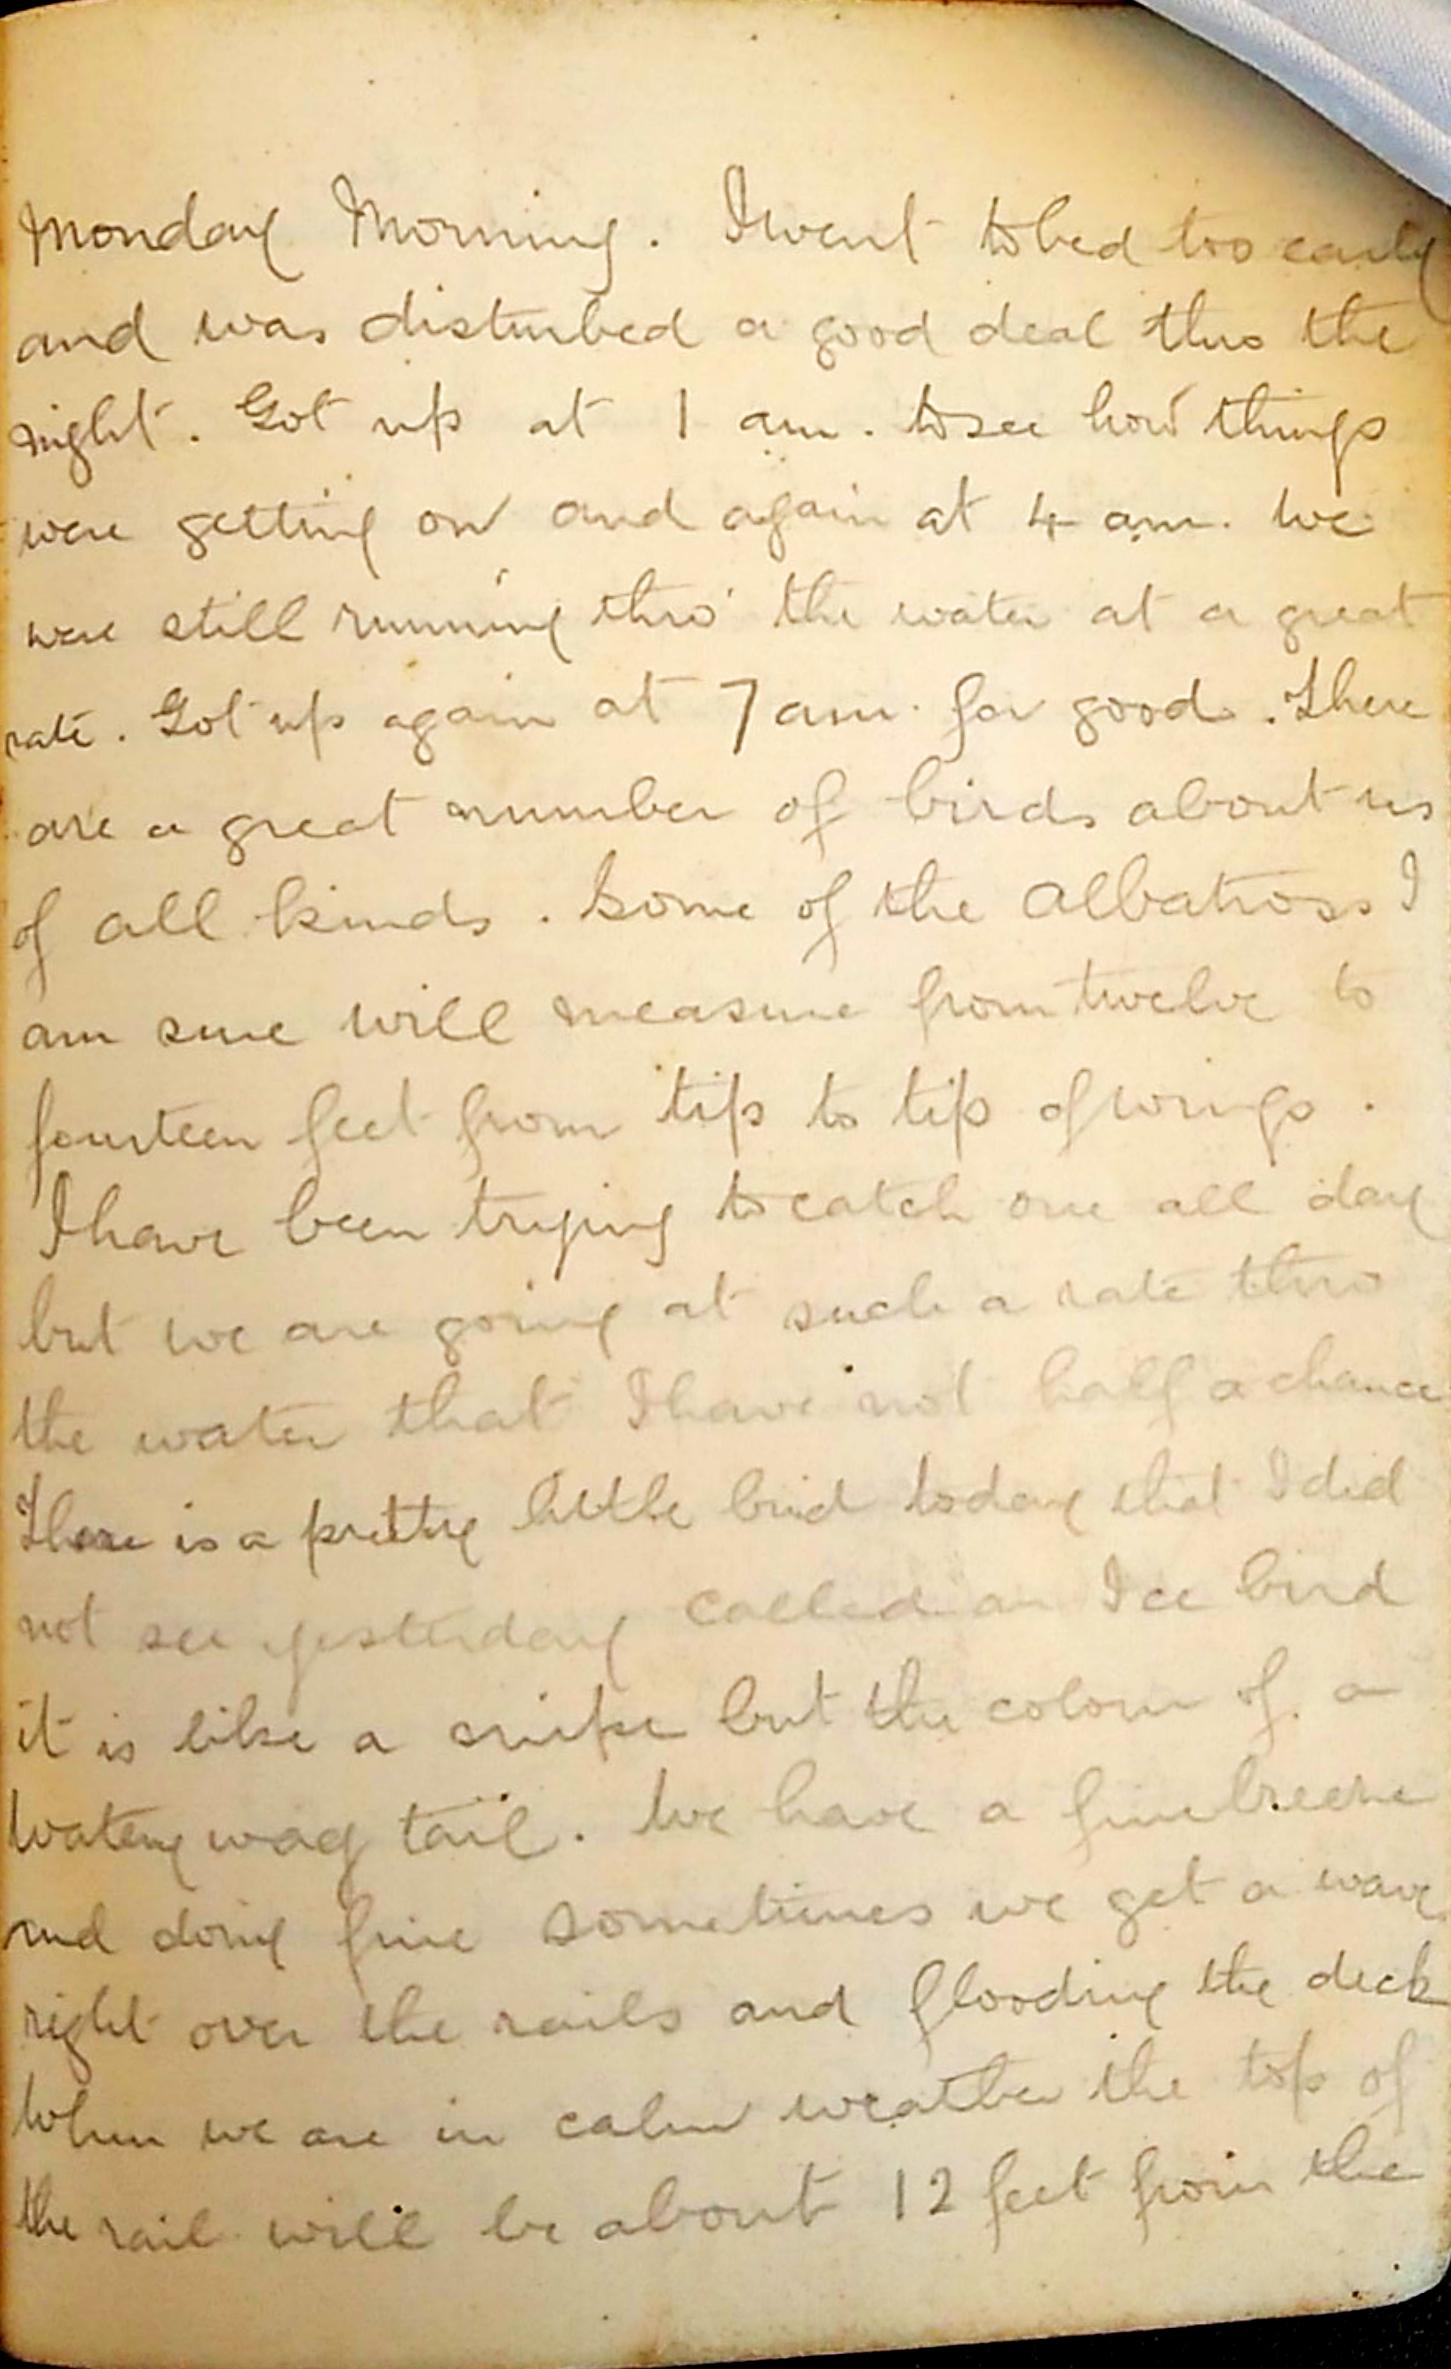 Monday Morning. I went to bed too early
and was disturbed a good deal thro the
night. Got up at 1 am. to see how things
were getting on and again at 4 am. We
were still running thro' the water at a great
rate. Got up again at 7 am. for good. There
are a great number of birds about us
of all kinds. Some of the Albatross I
am sure will measure from twelve to
fourteen feet from tip to tip of wings.
I have been trying to catch one all day
but we are going at such a rate thro
the water that I have not half a chance
There is a pretty little bird today that I did
not see yesterday called an Ice bird
it is like a snipe but the colour of a
Watery wag tail. We have a fine breeze
and doing fine sometimes we get a wave
right over the rails and flooding the deck
When we are in calm weather the top of
the rail will be about 12 feet from the